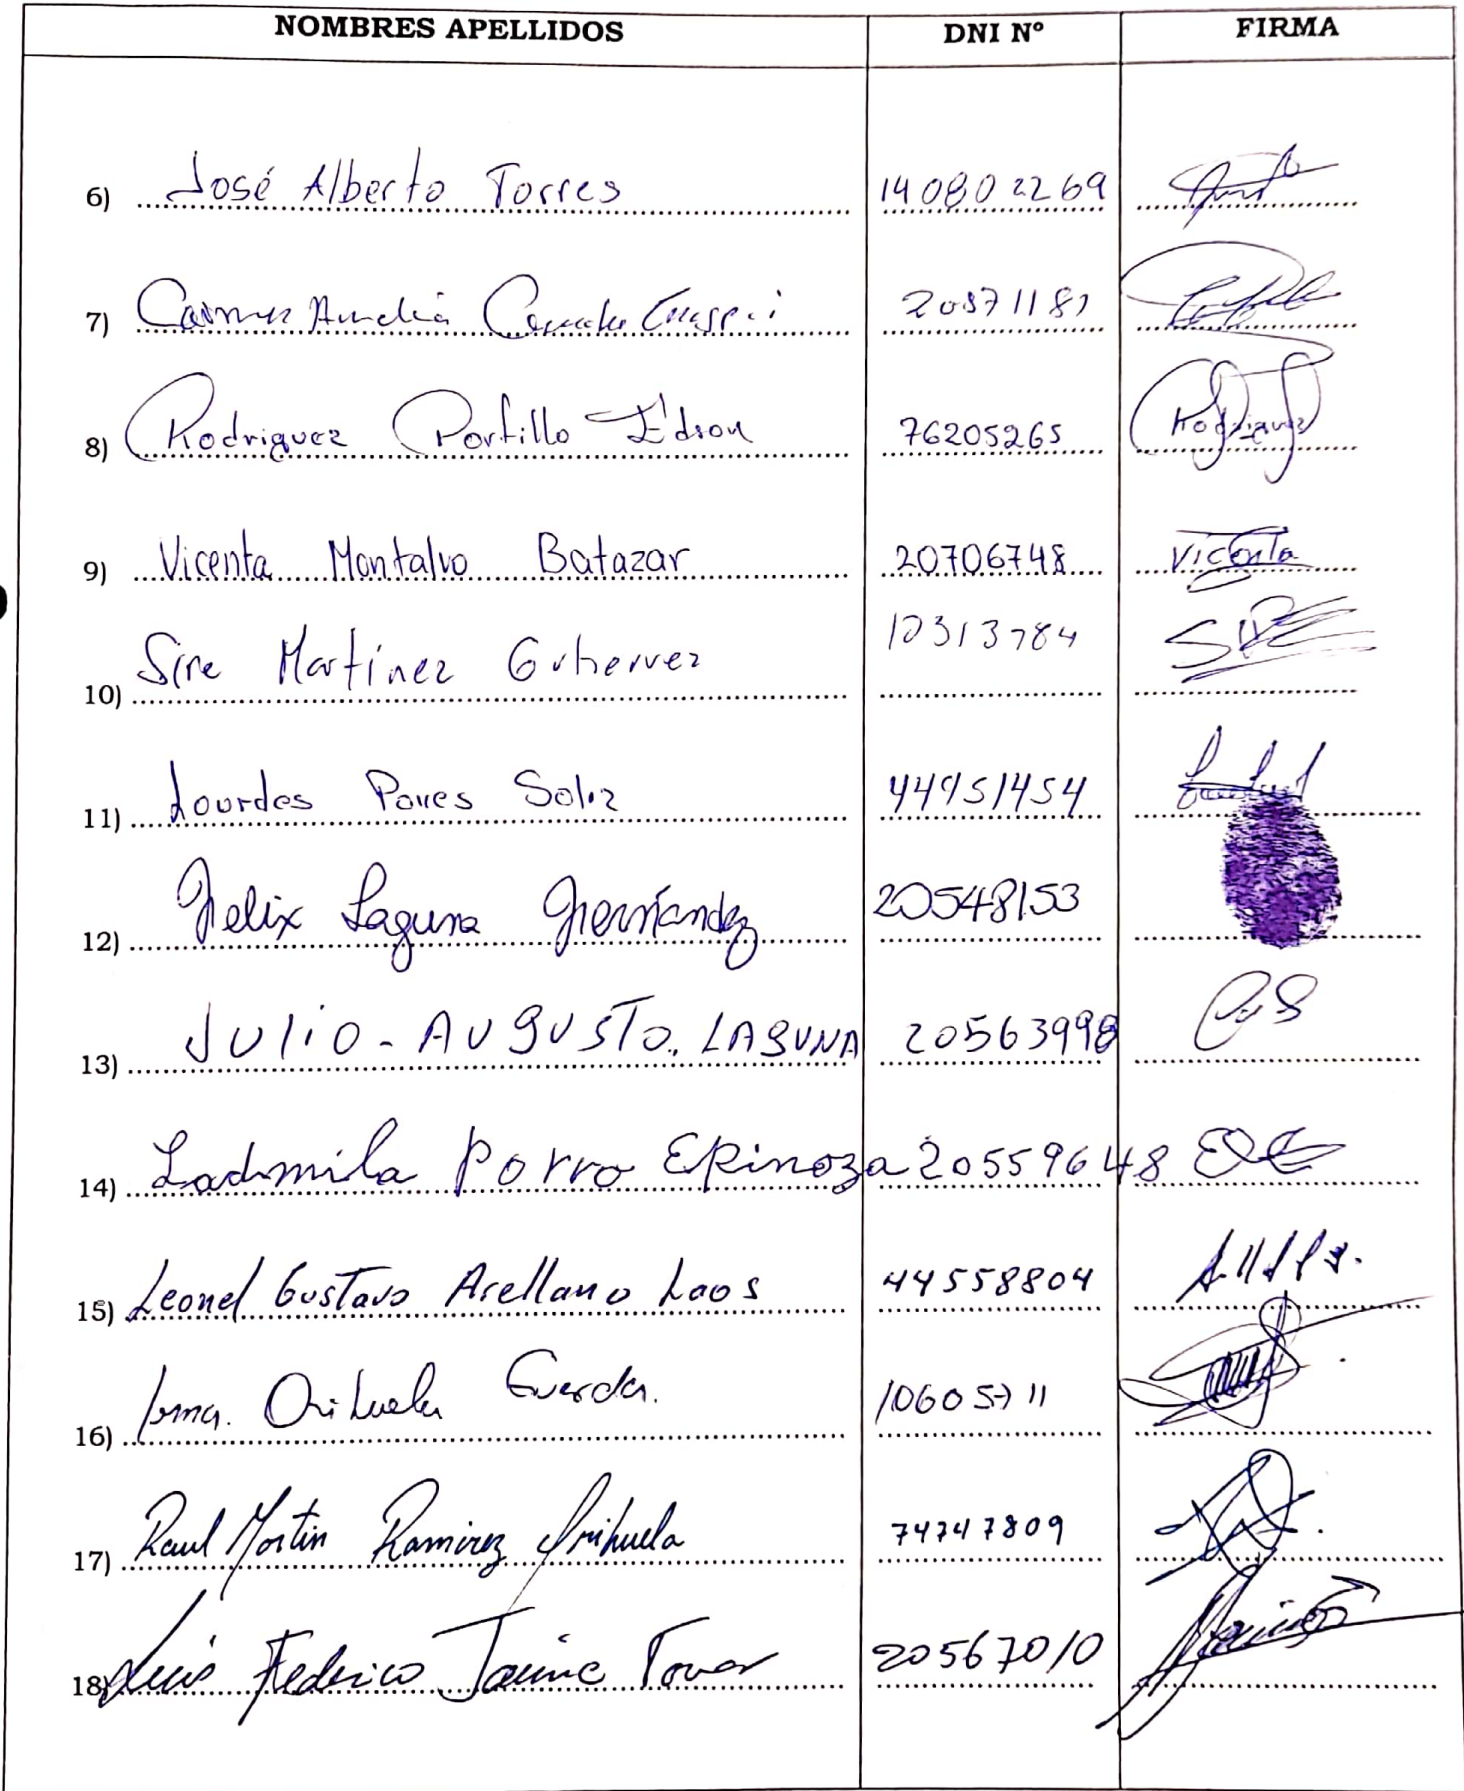 NOMBRES APELLIDOS DNI Nº FIRMA
6) José Alberto Torres 140802269
7) Carmen Aurelia
8) Rodriguez Portillo Edson 76205265 Rodriguez
9) Vicenta Montalvo Batazar 20706748 Vicenta
10) Sire Martínez Gutierrez 10313784
11) Lourdes Poves Soliz 44951454
12) Felix Laguna Hernández 20548153
13) JULIO - AUGUSTO. LAGUNA 20563998
14) Ladmila Porro Epinoza 20559648
15) Leonel Gustavo Arellano Laos 44558804
16) Irma. Orihuela 10605711
17) Raul Martin Ramirez Orihuela 74747809
18) Luis Federico Jaime Tovar 20567010